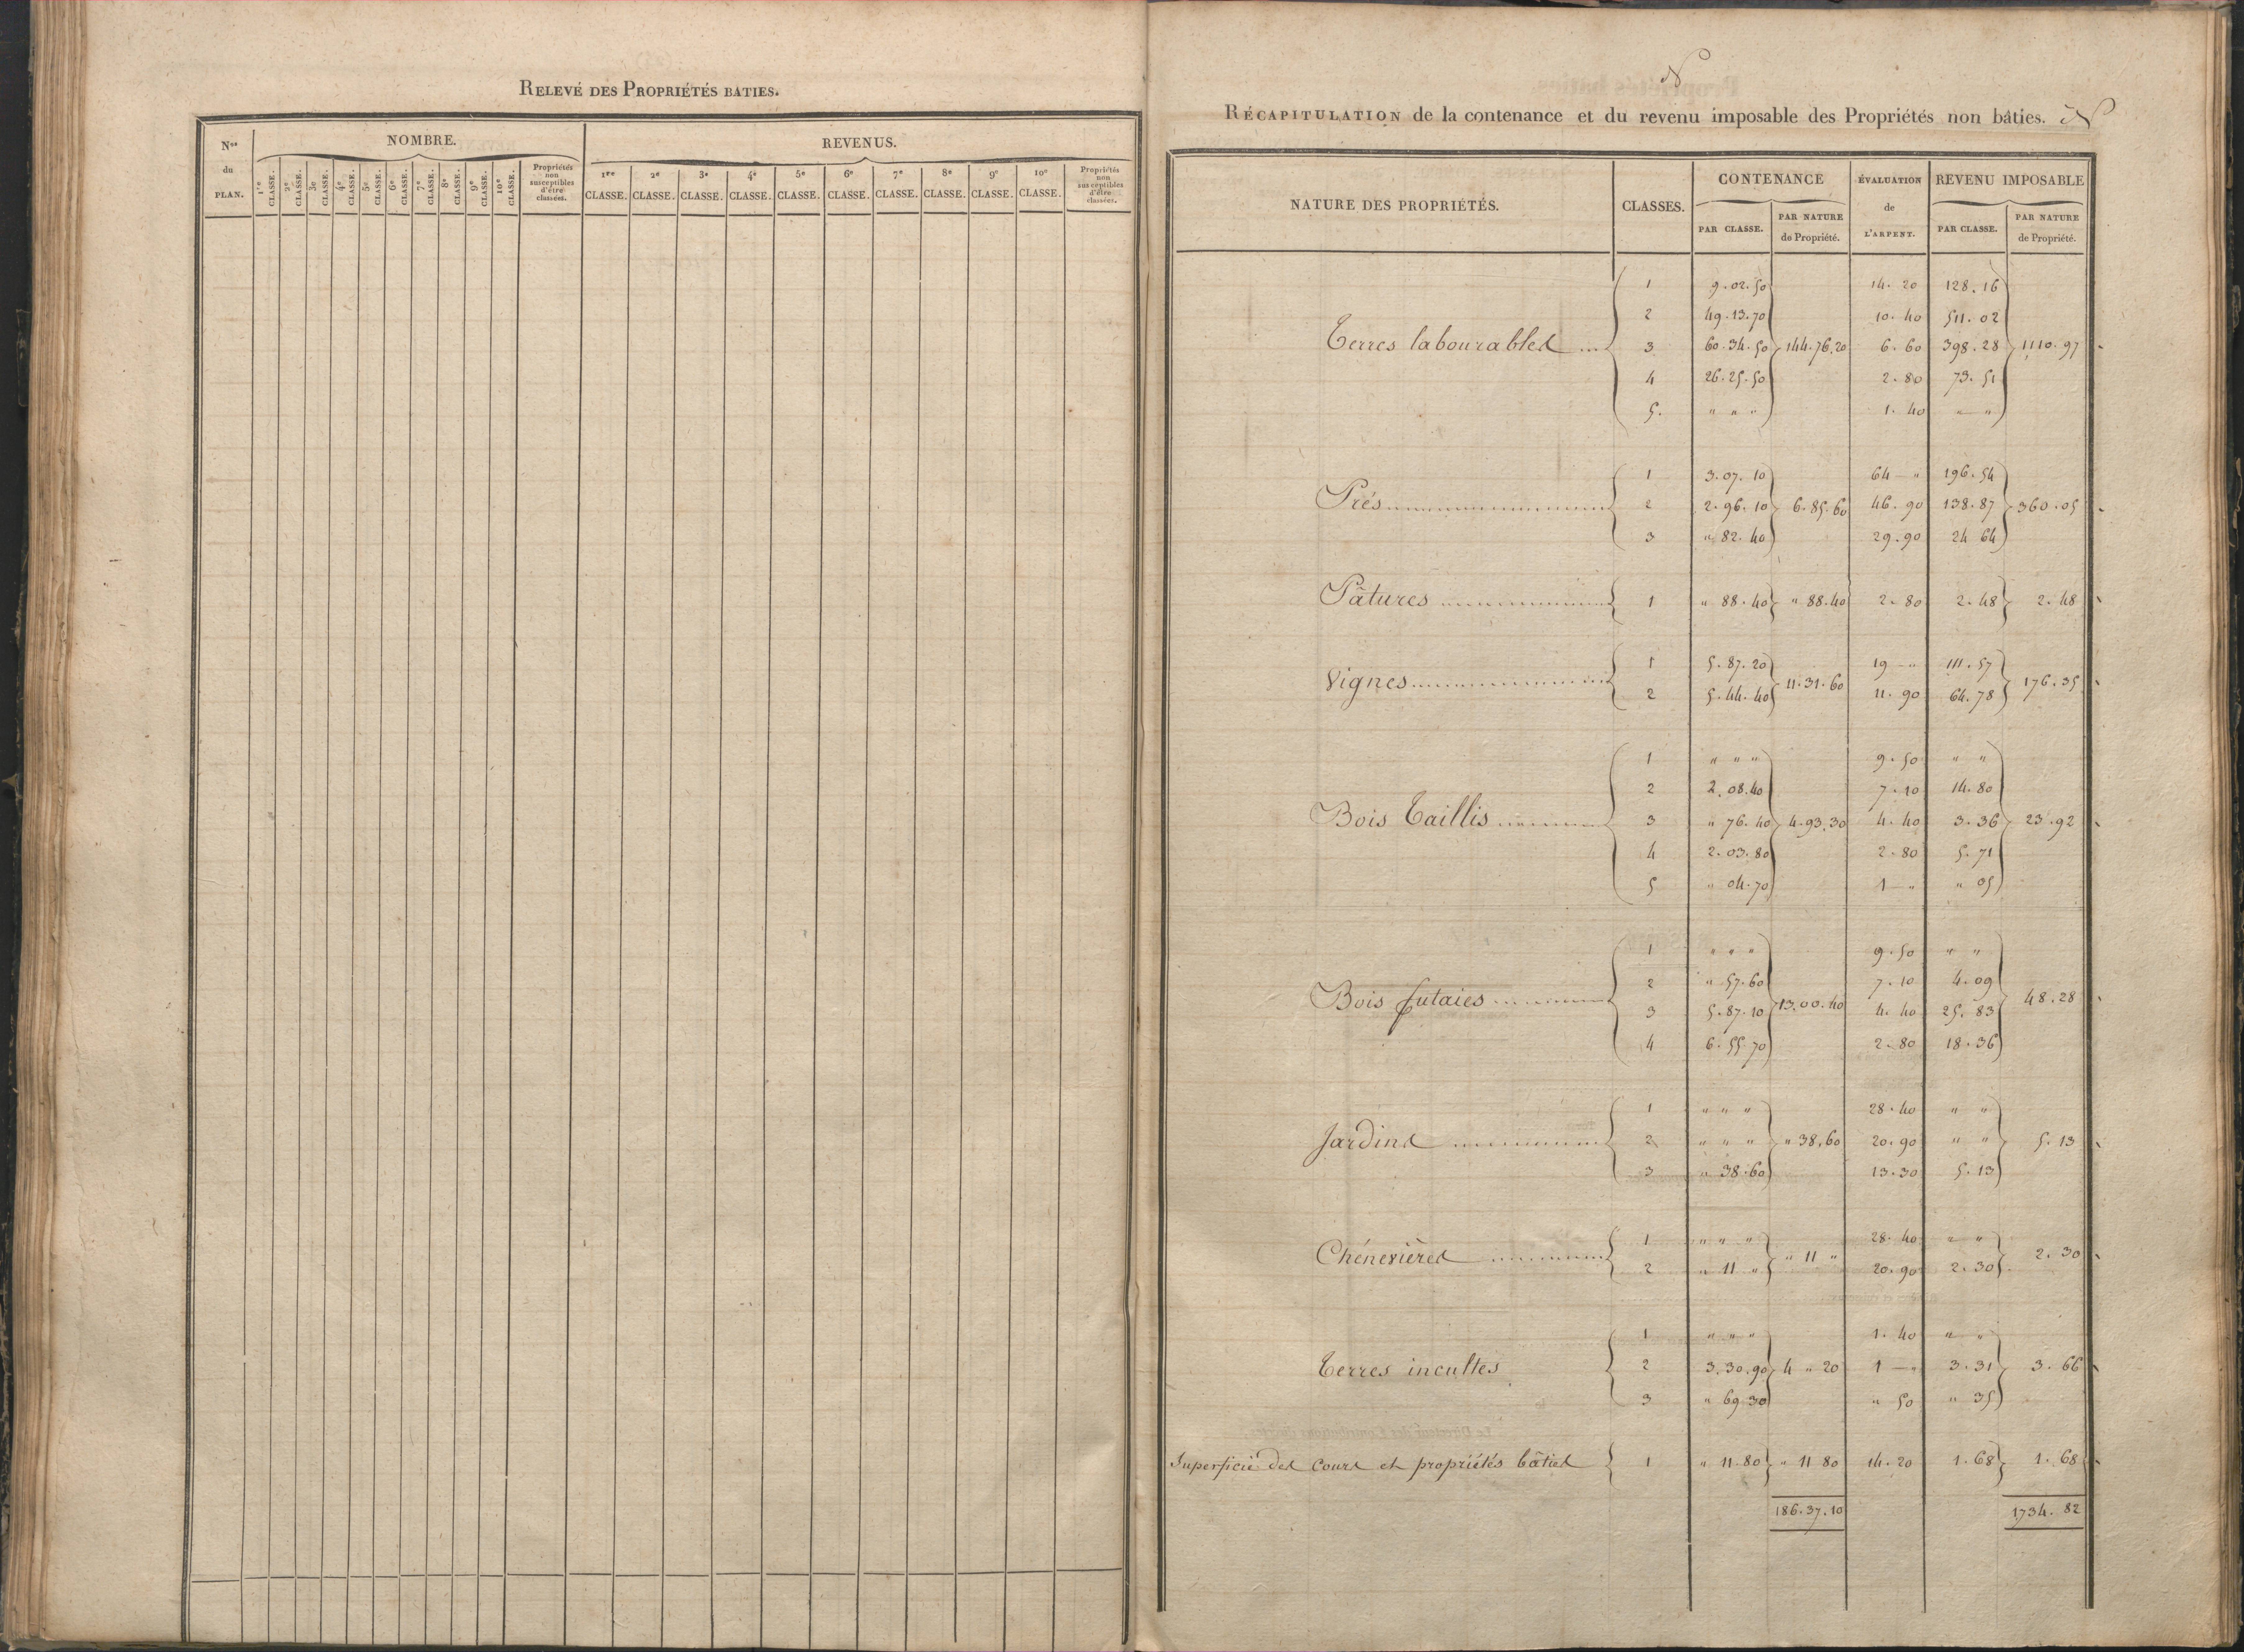 RELEVÉ DES PROPRIÉTÉS BATIES.
Nos du PLAN.
NOMBRE.
REVENUS.
1re CLASSE. 2e CLASSE. 3e CLASSE. 4e CLASSE. 5e CLASSE. 6e CLASSE. 7e CLASSE. 8e CLASSE. 9e CLASSE. 10e CLASSE. Propriétés non susceptibles d'être classées.
1re CLASSE. 2e CLASSE. 3e CLASSE. 4e CLASSE. 5e CLASSE. 6e CLASSE. 7e CLASSE. 8e CLASSE. 9e CLASSE. 10e CLASSE. Propriétés non susceptibles d'être classées.
N
RÉCAPITULATION de la contenance et du revenu imposable des Propriétés non bâties. N
NATURE DES PROPRIÉTÉS. CLASSES. CONTENANCE ÉVALUATION de L'ARPENT. REVENU IMPOSABLE
PAR CLASSE. PAR NATURE de Propriété. PAR CLASSE. PAR NATURE de Propriété.
1 9.02.50 14.20 128.16
2 49.13.70 10.40 511.02
Terres labourables ... 3 60.34.50 144.76.20 6.60 398.28 1110.97
4 26.25.50 2.80 73.51
5. " " " 1.40 " "
1 3.07.10 64 — " 196.54
Prés 2 2.96.10 6.85.60 46.90 138.87 360.05
3 " 82.40 29.90 24 64
Pâtures 1 " 88.40 " 88.40 2.80 2.48 2.48
1 5.87.20 19 — " 111.57
Vignes 11.31.60 176.35
2 5.44.40 11.90 64.78
1 " " " 9.50 " "
2 2.08.40 7.10 14.80
Bois Taillis 3 " 76.40 4.93.30 4.40 3.36 23.92
4 2.03.80 2.80 5.71
5 " 04.70 1 — " " 05
1 " " " 9.50 " "
2 " 57.60 7.10 4.09
Bois futaies 13.00.40 48.28
3 5.87.10 4.40 25.83
4 6.55.70 2.80 18.36
1 " " " 28.40 " "
Jardins 2 " " " " 38.60 20.90 " " 5.13
3 " 38.60 13.30 5.13
1 " " " 28.40 " "
Chénevières " 11 " 2.30
2 " 11 " 20.90 2.30
1 " " " 1.40 " "
Terres incultes 2 3.30.90 4 " 20 1 — " 3.31 3.66
3 " 69.30 " 50 " 35
Superficie des cours et propriétés bâties 1 " 11.80 " 11 80 14.20 1.68 1.68
186.37.10 1734.82